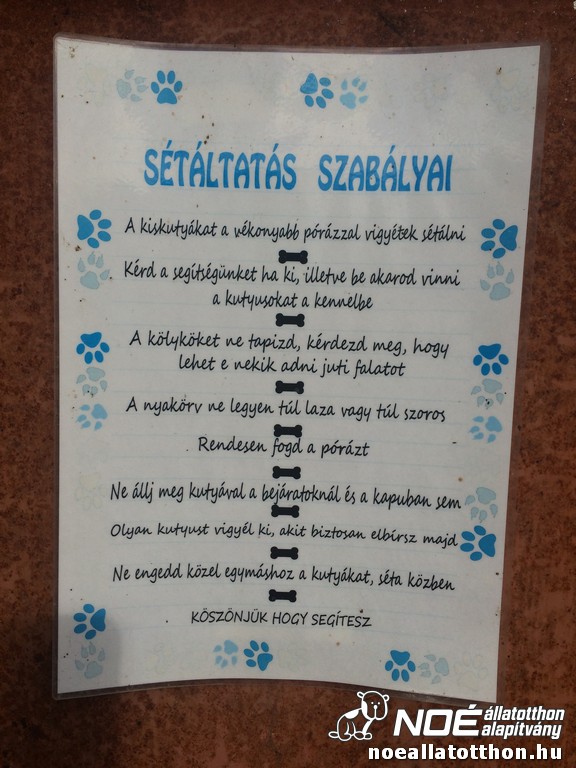 SÉTÁLTATÁS SZABÁLYAI
A kiskutyákat a vékonyabb pórázzal vigyétek sétálni
Kérd a segítségünket ha ki, illetve be akarod vinni
a kutyusokat a kennelbe
A kölyköket ne tapizd, kérdezd meg, hogy
lehet e nekik adni juti falatot
A nyakörv ne legyen túl laza vagy túl szoros
Rendesen fogd a pórázt
Ne állj meg kutyával a bejáratoknál és a kapuban sem
Olyan kutyust vigyél ki, akit biztosan elbírsz majd
Ne engedd közel egymáshoz a kutyákat, séta közben
KÖSZÖNJÜK HOGY SEGÍTESZ
NOÉ állatotthon
alapítvány
noeallatotthon.hu